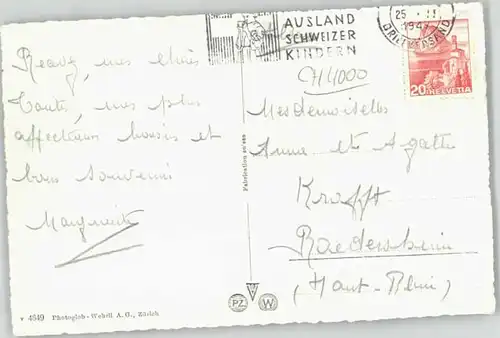 AUSLAND
SCHWEIZER
KINDERN
25
1947
20 HELVETIA
H4000
Recevez, mes chéries
toutes, mes plus
affectueux baisers et
bons souvenirs
Marguerite
Mesdemoiselles
Anne et Agathe
Krafft
Raedersheim
(Haut-Rhin)
Fabrication suisse
PZ W
v 4649 Photoglob-Wehrli A.G., Zürich